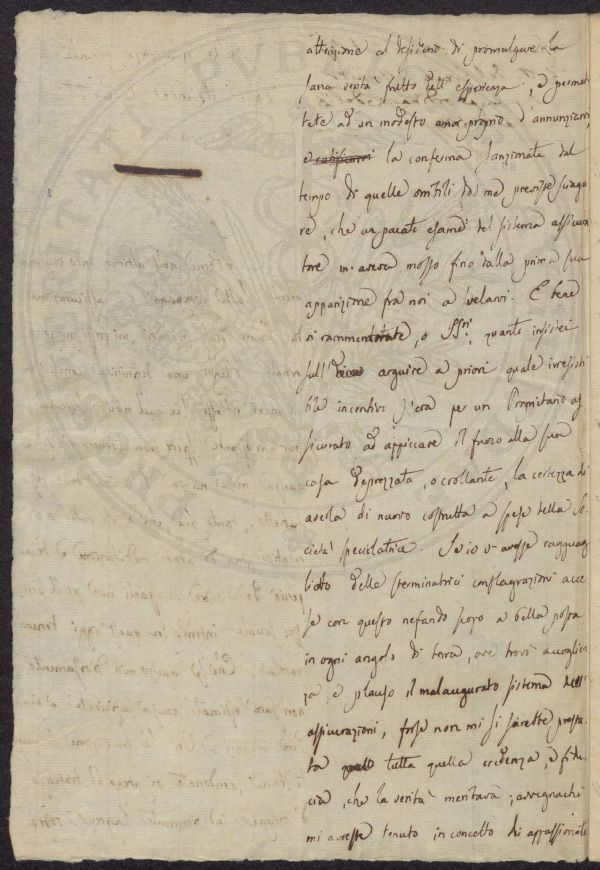 attenzione al desiderio di promulgare la
sana verità frutto dell' esperienza, e permet
tete ad un modesto amor proprio d'annunziarvi,
e ratificarvi la conferma sanzionata dal
tempo di quelle ostili da me previste sciagu
re, che un pacato esame del sistema assicura
tore m. aveva mosso fino dalla prima sua
apparizione fra noi a svelarvi. E bene
vi rammentate, o SSri, quanto insistei
sull' arguire a priori quale irresisti
bile incentivo s'era per un Proprietario as
sicurato ad appiccare il fuoco alla sua
casa deprezzata, o crollante, la certezza di
averla di nuovo costrutta a spese della So
cietà speculatrice. Se io v' avessi ragguag
liato delle sterminatrici conflagrazioni acce
se con questo nefando scopo a bella posta
in ogni angolo di terra, ove trovi accoglien
za e plauso il malaugurato sistema dell'
assicurazioni, forse non mi si sarebbe presta
ta tutta quella credenza, e fidu
cia, che la verità meritava; avvegnachè
mi avreste tenuto in concetto di appassionato